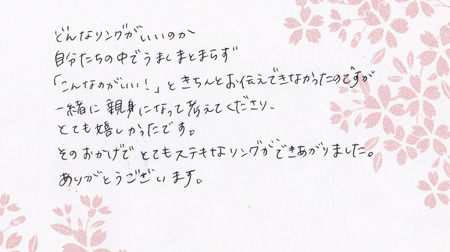 どんなリングがいいのか
自分たちの中でうまくまとまらず
「こんなのがいい！」ときちんとお伝えできなかったのですが
一緒に親身になって考えてくださり、
とても嬉しかったです。
そのおかげでとてもステキなリングができあがりました。
ありがとうございます。